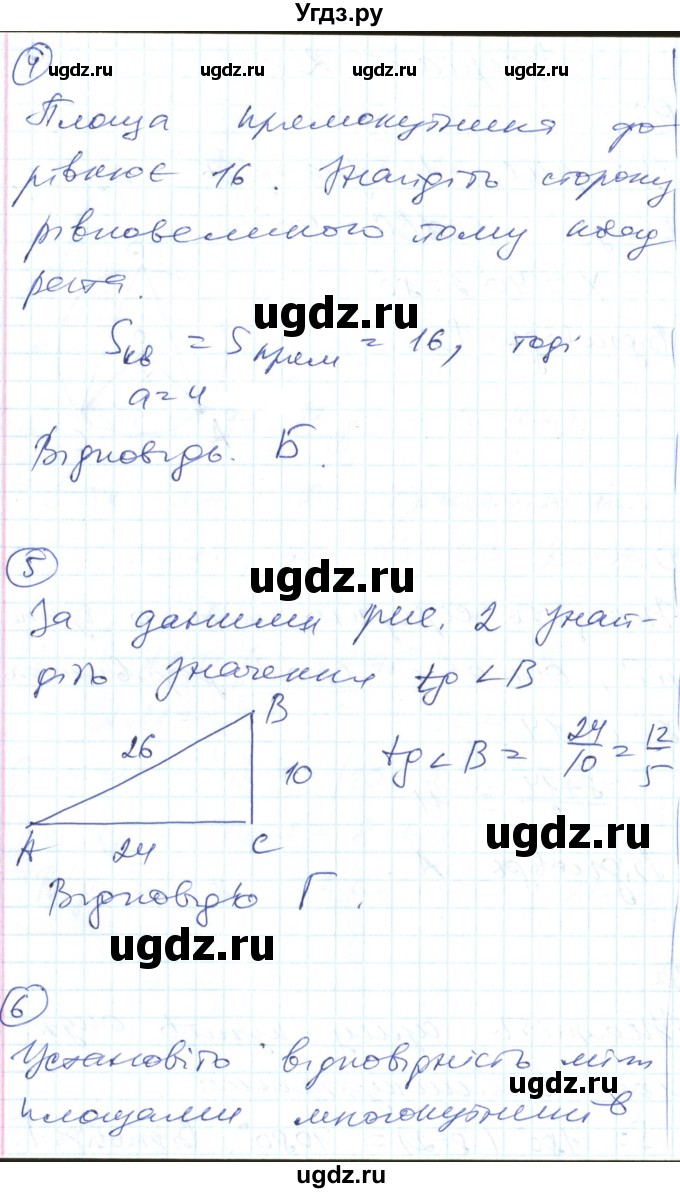 Угдз.ру
ugdz.ru ugdz.ru ugdz.ru ugdz.ru
4
Площа прямокутника до
рівнює 16. Знайдіть сторону
рівновеликого йому квад
рата.
ugdz.ru
Sкв = Sпрям = 16, тоді
a = 4
Відповідь. Б.
5
ugdz.ru
За даними рис. 2 знай-
діть значення tg ∠B
B
26
10
A
24
C
tg ∠B = 24/10 = 12/5
ugdz.ru
Відповідь Г.
ugdz.ru
6
Установіть відповідність між
ugdz.ru ugdz.ru ugdz.ru ugdz.ru
площами многокутників
ugdz.ru